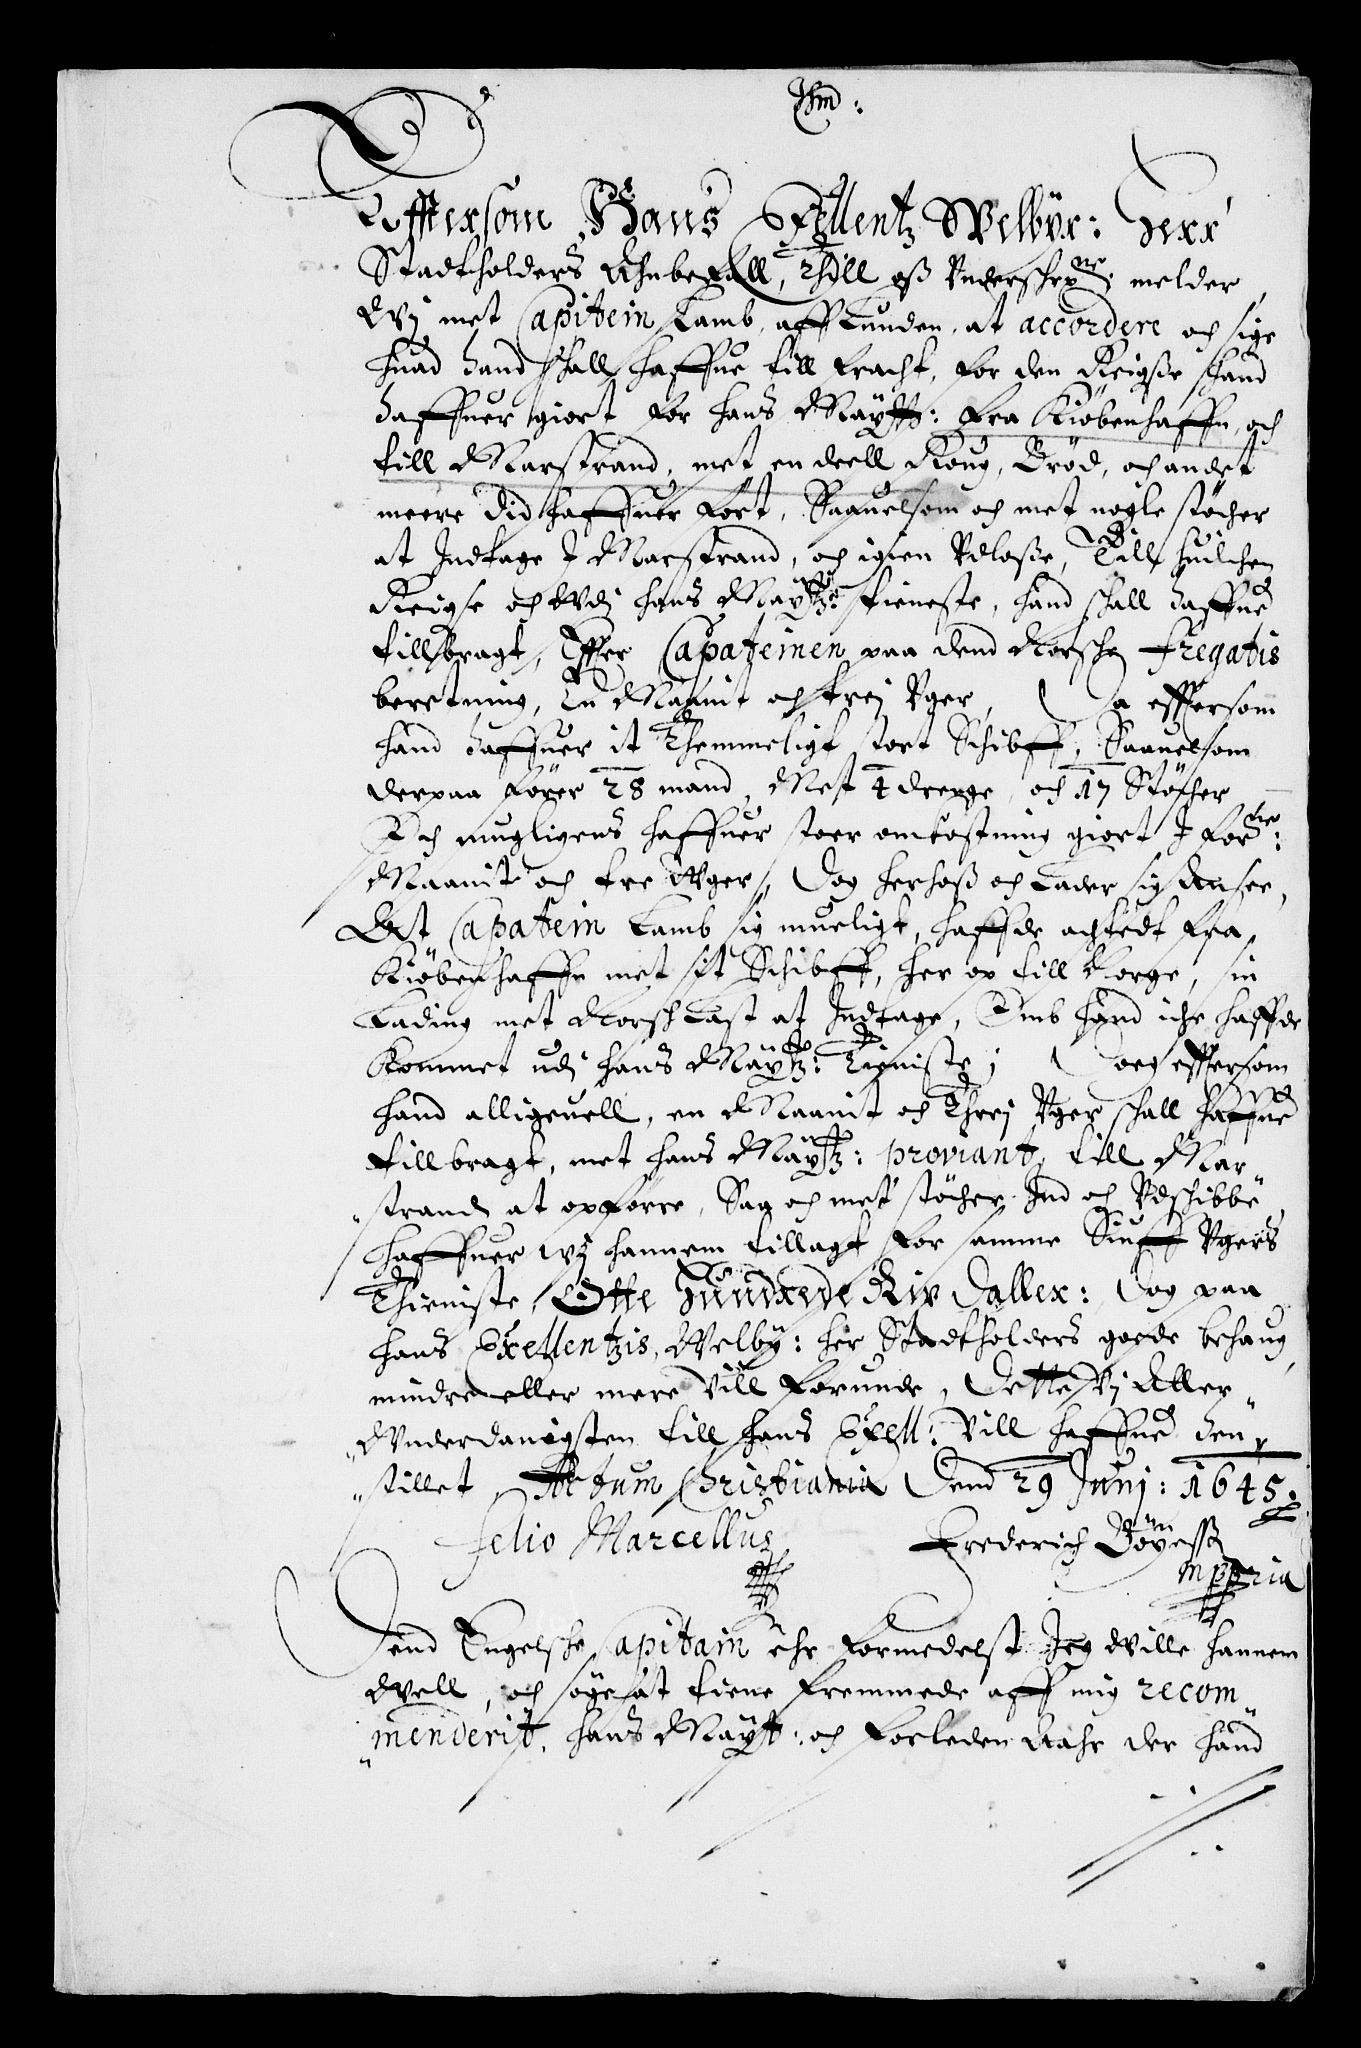 Efftersom Hans Exellentz Welbör: Herr
Stadtholders Anbefall, Thill oß Underschrefne: melder
Wj met Capitein Lamb, aff Lunden, at accordere och sige
huad hand shall haffue till fracht, for den Reigße shand
haffuer giort for hans Maÿtt: fra Kiöbenhaffn, och
till Marstrand, met en deell Roug, Bröd, och andet
meere did haffuer fört, Saauelsom och met nogle stöcher
at Indtage I Marstrand, och igien Udloße, Till huilchen
Reigse och udj hans Maÿtz: tieneste, hand shall haffue
tillbragt, Effter Capateinen paa dend Norsche Fregatis
beretning, En Maanit och trej Uger, Da effersom
hand haffuer it Themmeligt stort Schibff, Saauelsom
derpaa förer 28 mand, Met 4 drenge, och 17 Stöcher
Och mugligens haffuer stoer omkostning giort I forne:
Maanit och tre Uger, Dog herhoß och Lader sig Ansee,
At Capatein Lamb sig mueligt, haffde achtedt fra
Kiöbenhaffn met sit Schibff, her op till Norge, sin
Lading met Norsch Last at Indtage, Omb hand iche haffde
Kommet udj hans Maÿtz: Tieniste; Doeg effersom
hand alligeuell, en Maanit och Threj Uger shall haffue
tillbragt, met hans Maÿtz: proviant, till Mar
strand at opförre, Saa och met stöcher Ind och Udschibbe
haffuer wj hannem tillagt for samme Siuff Ugers
Thieniste, Otte Hundrede Rix Daller: Dog paa
hans Exellentzis, Welby: her Stadtholders goede behaug
mindre eller mere Vill forunde, Dette Vj Aller
Underdanigsten till hans Exell: Vill haffue hen
stillet, Actum Christiania Dend 29 Junj: 1645:
Selio Marcellus Frederich Böÿeßß
mppria
Dend Engelsche Capitain ehr formedelst Jeg Wille hannem
Well, och söge at tiene fremmede aff mig recom
menderit, hans Maÿtt: och forleden Aahr der hand